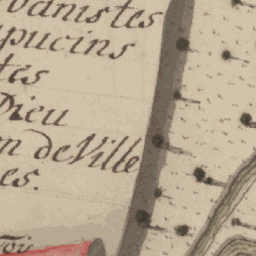 banistes
pucins
tes
Dieu
n de Ville
es.